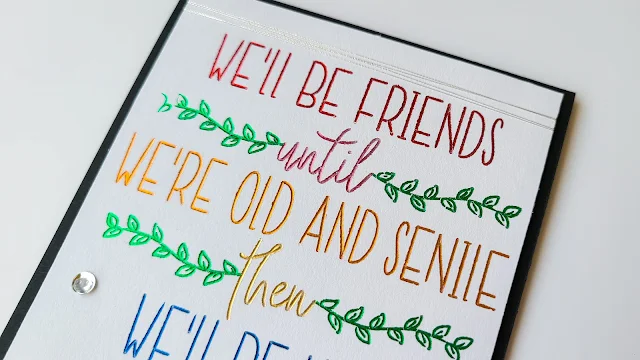 WE'LL BE FRIENDS
until
WE'RE OLD AND SENILE
then
WE'LL BE